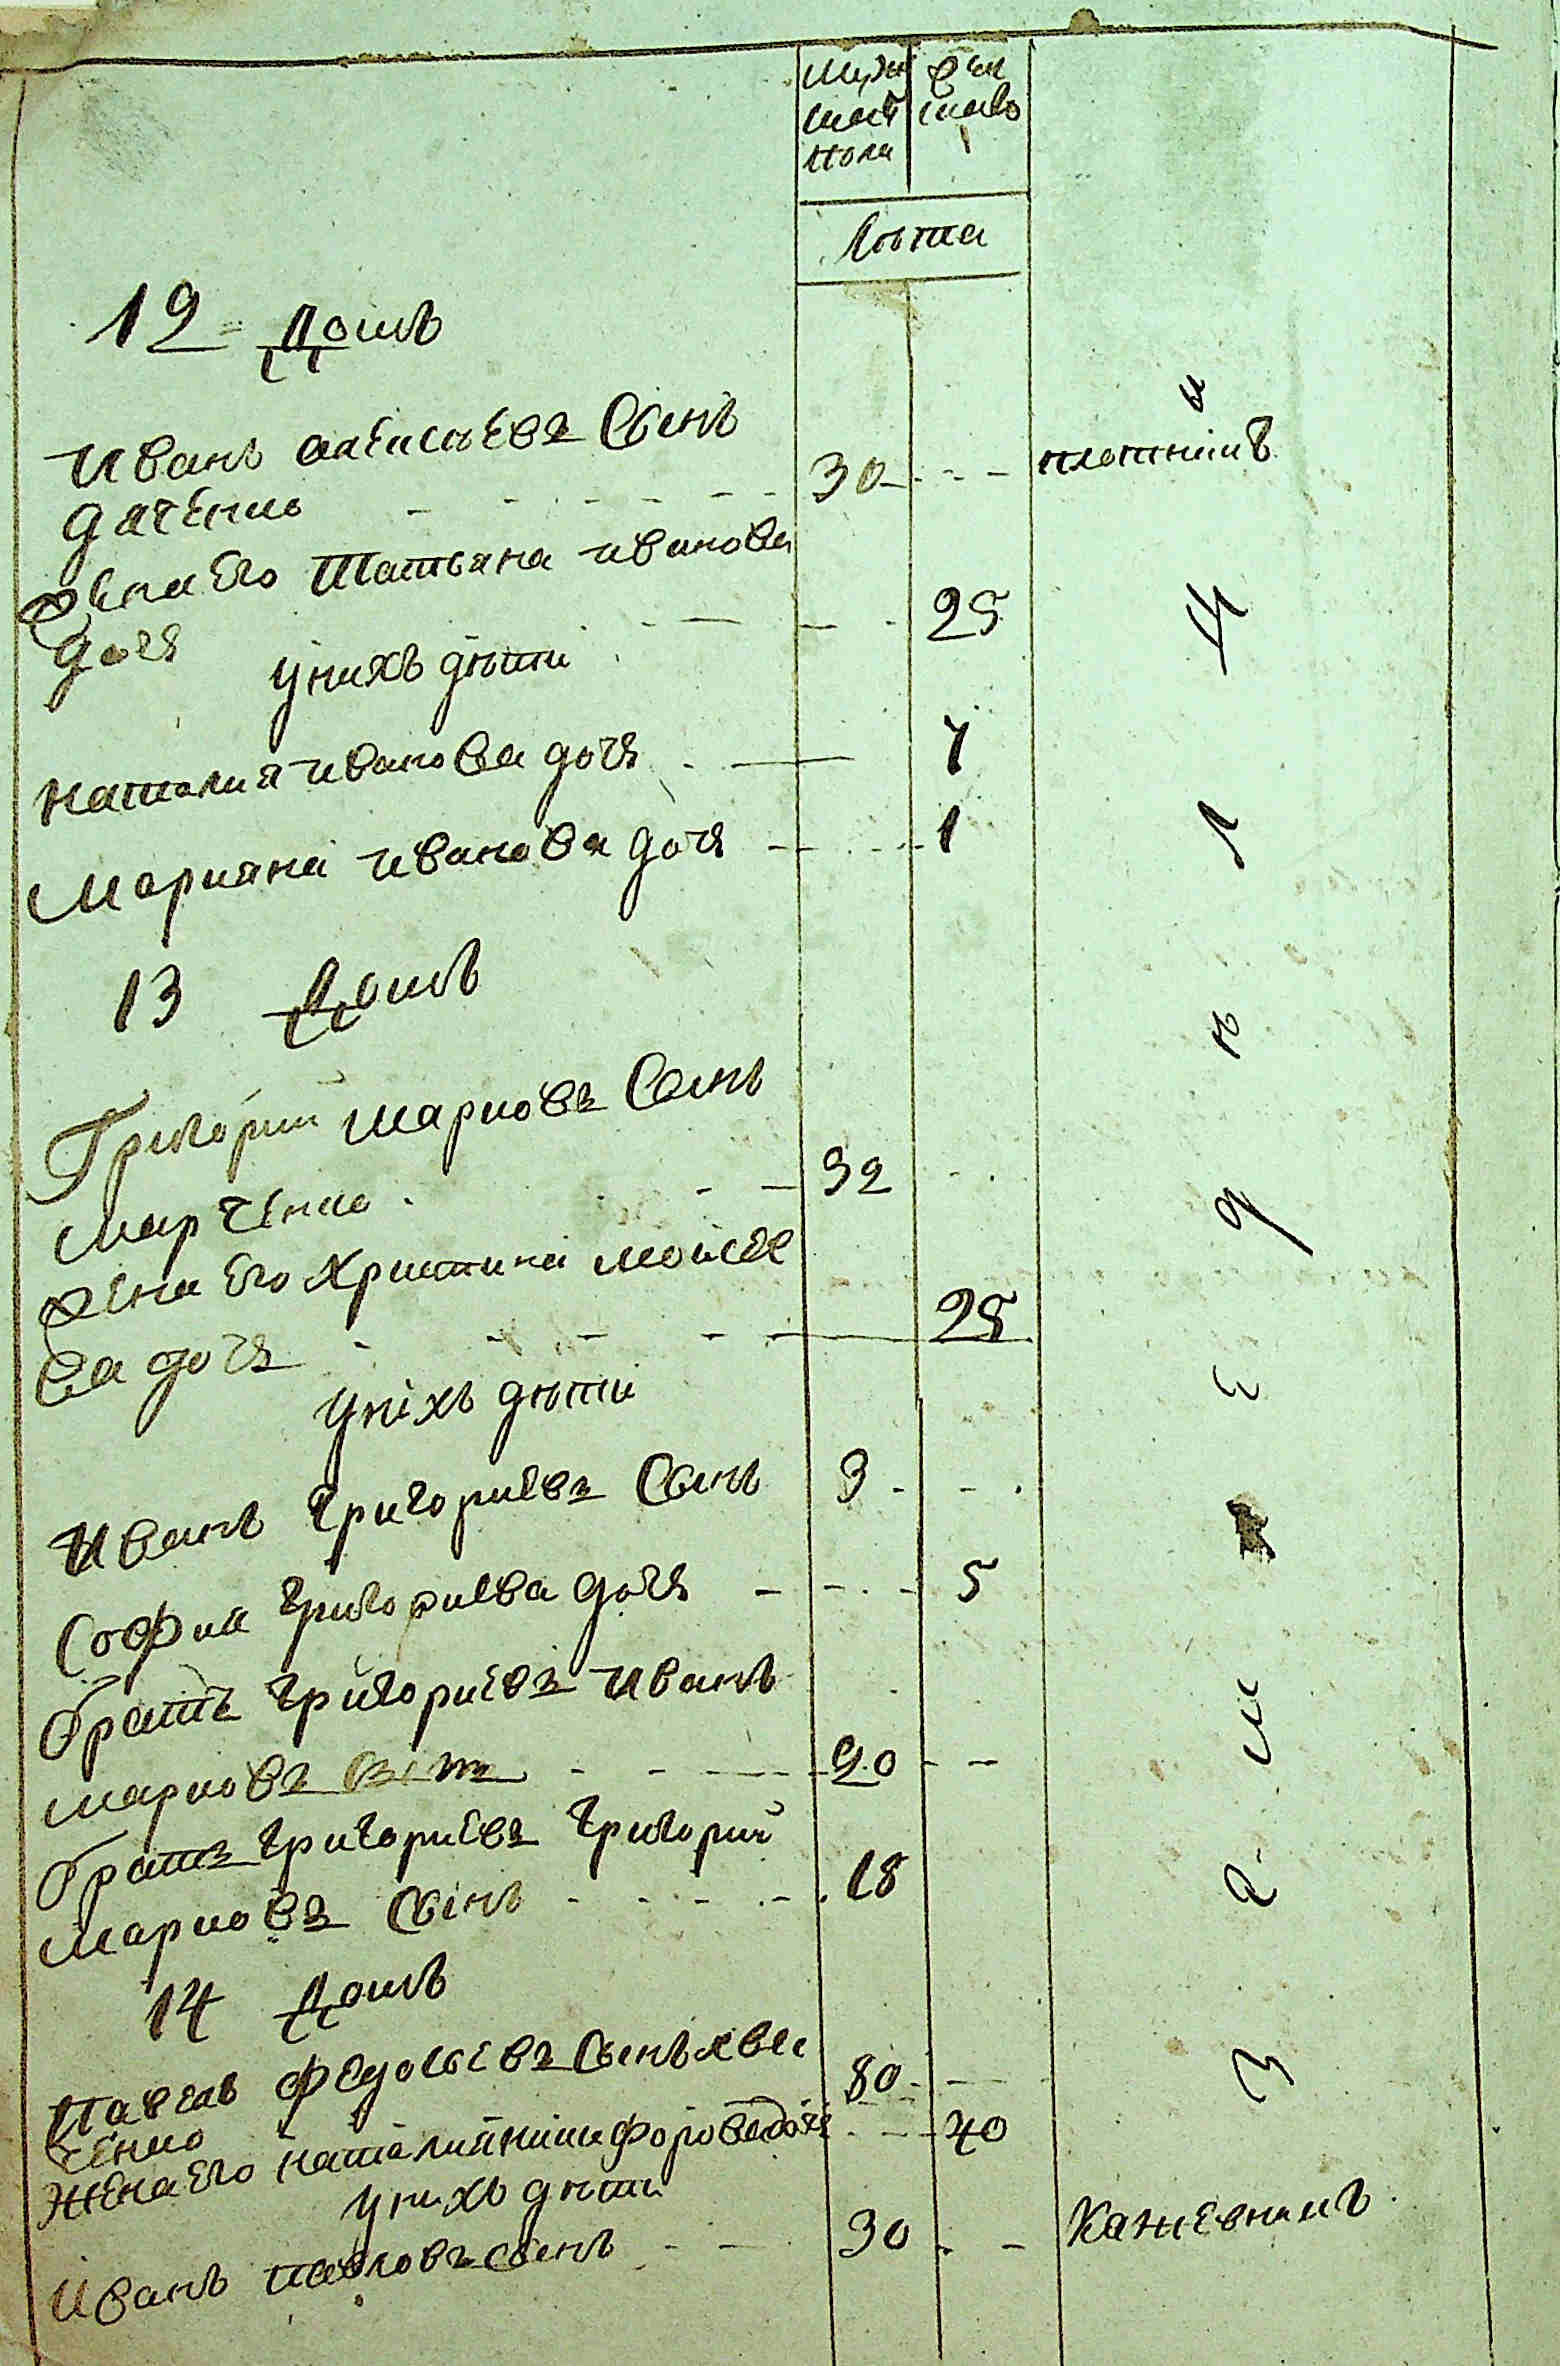 Муже
ска
пола
Жен
скаго
Лѣта
12 Домъ
Иванъ алексѣевъ Сынъ
дяченко 30 плотникъ
Жена Его татьяна иванова
дочя 25
у нихъ дѣти
наталия иванова дочя 4
мариана иванова дочя 1
13 Домъ
Григорий марковъ Сынъ
марченко 32
жена Его христина мойсее
ва дочя 25
у нихъ дѣти
Иванъ григориевъ Сынъ 3
София григориева дочя 5
братъ григориевъ иванъ
марковъ 20
братъ григориевъ григорий
марковъ Сынъ 18
14 Домъ
Павелъ федосиевъ Сынъ ква
ченко 80
жена Его наталия никифорова дочя 40
у нихъ дѣти
Иванъ павловъ сынъ 30 Кажевникъ
з е м л е д ѣ л ц и